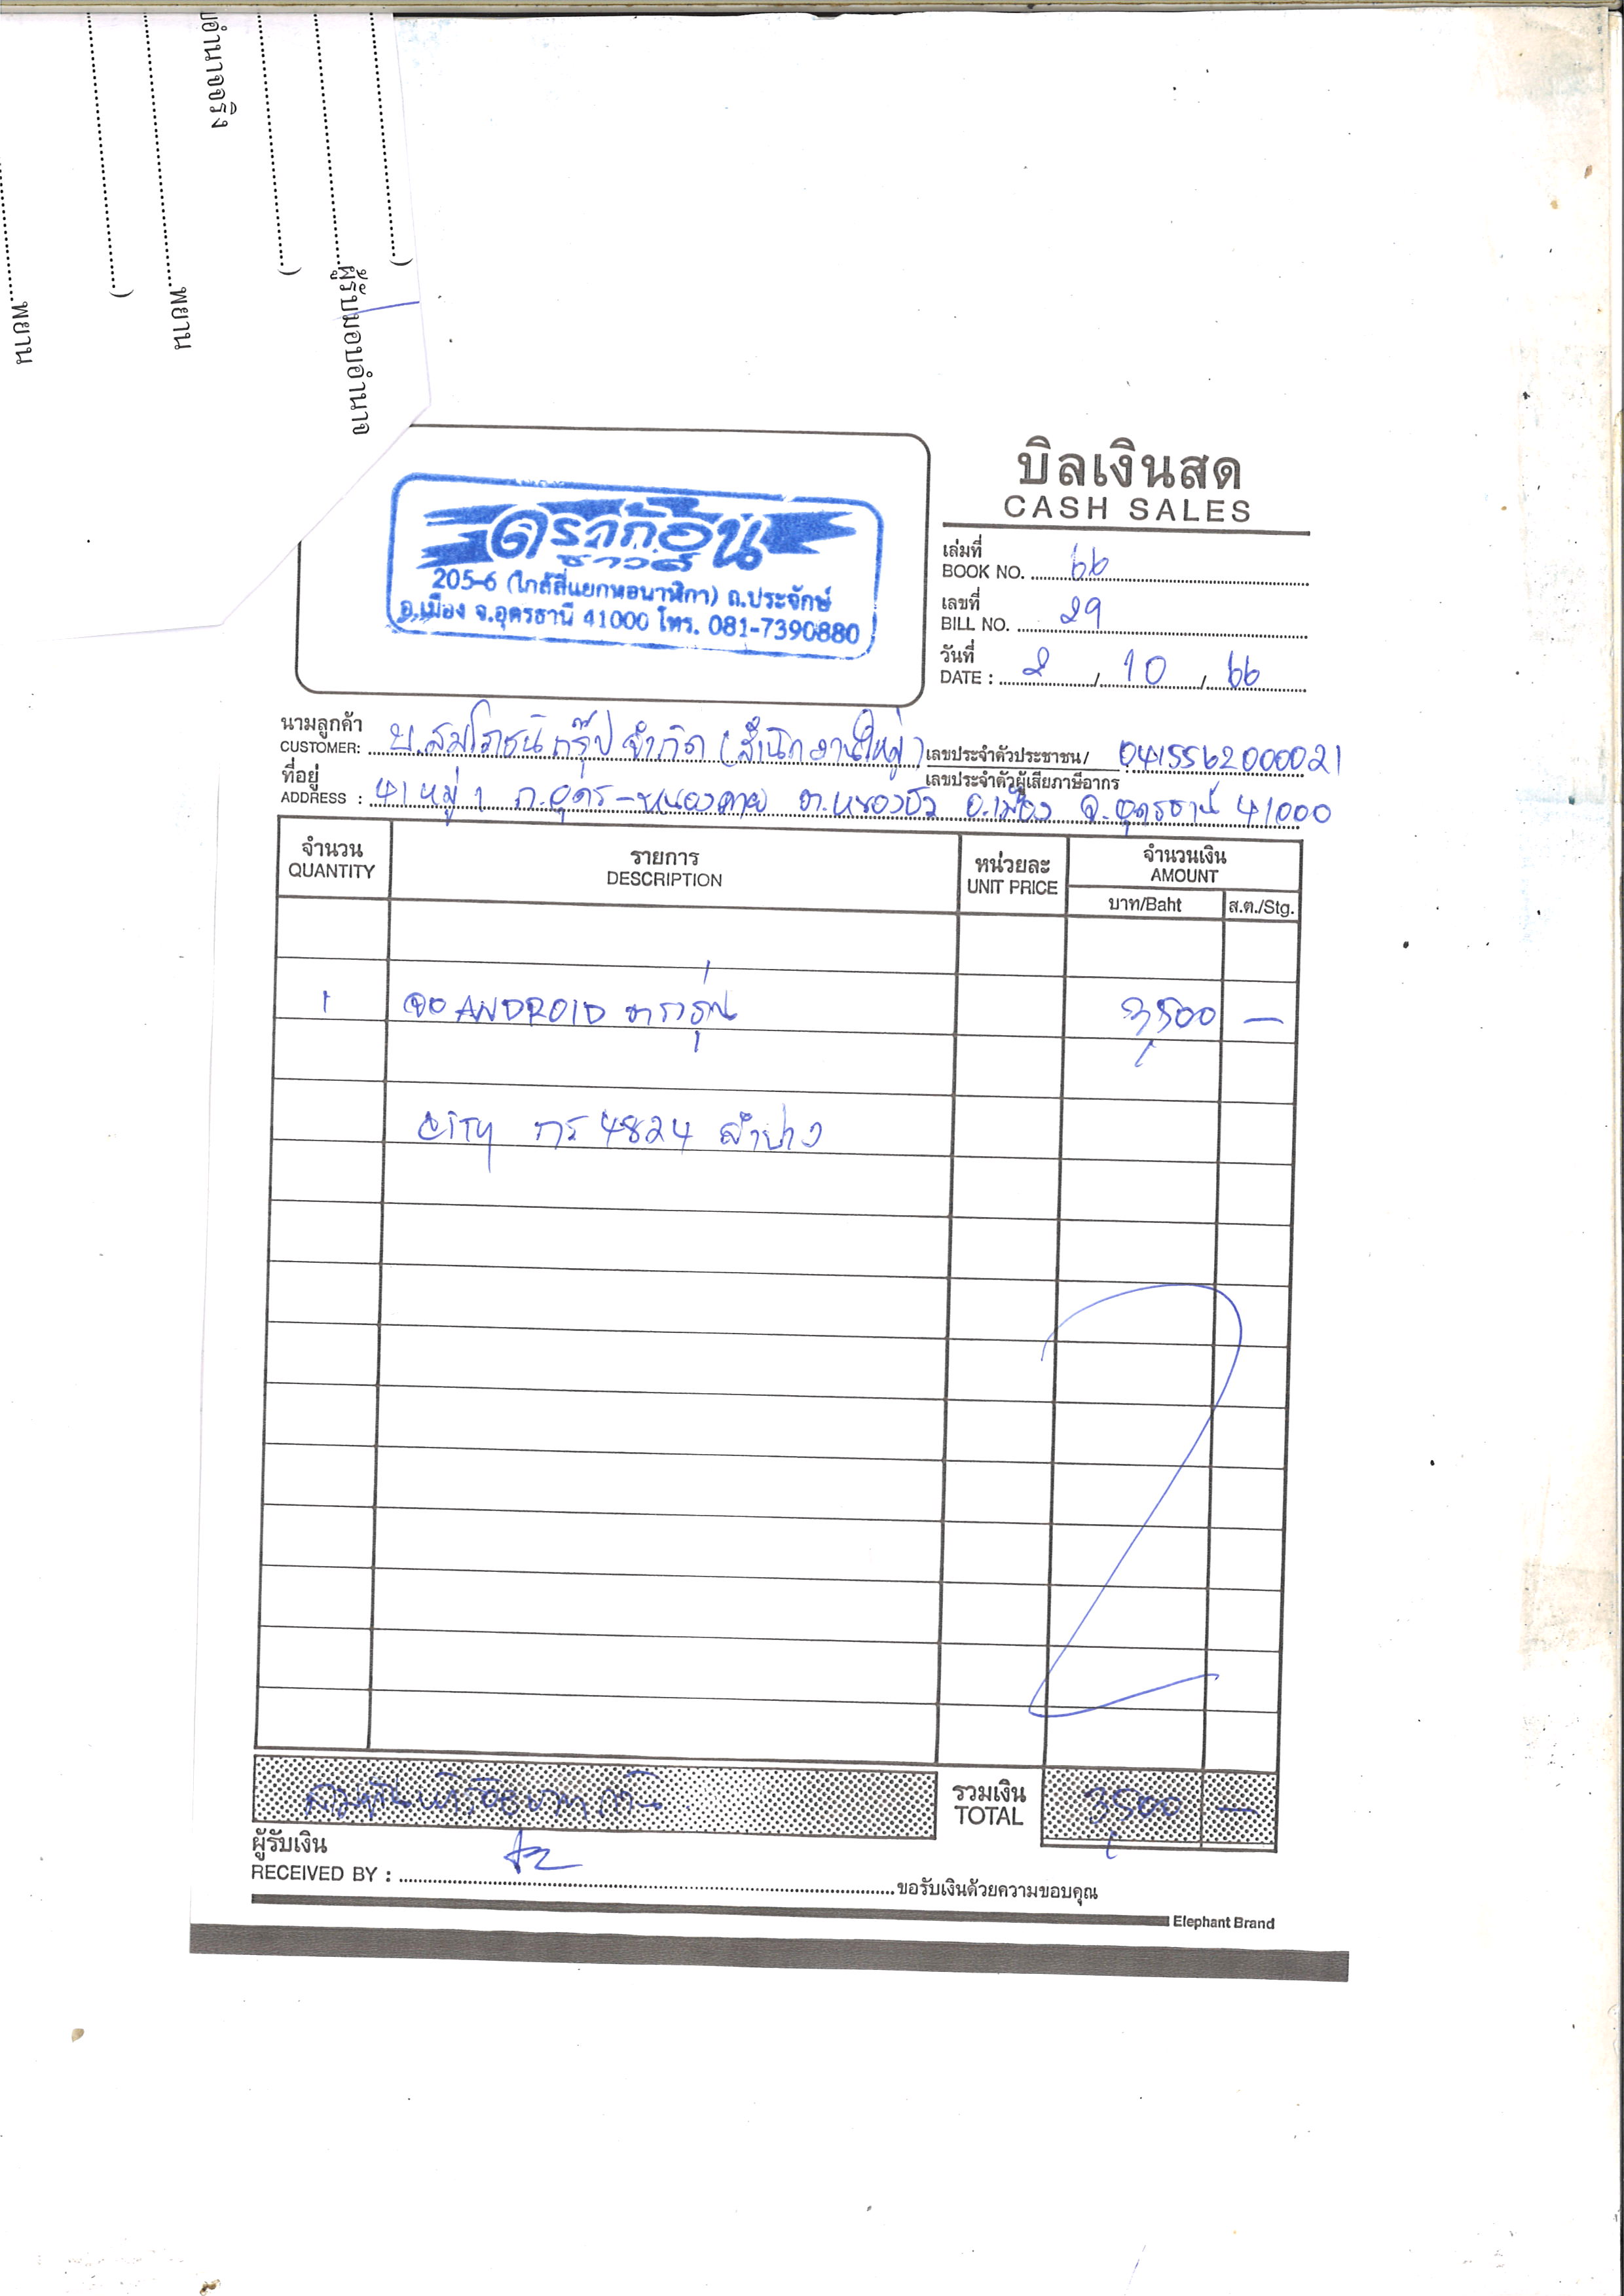 บอำนาจจริง
ผู้รับมอบอำนาจ
พยาน
พยาน
ดราก้อน
ซาวด์
205-6 (ใกล้สี่แยกหอนาฬิกา) ถ.ประจักษ์
อ.เมือง จ.อุดรธานี 41000 โทร. 081-7390880
บิลเงินสด
CASH SALES
เล่มที่
BOOK NO. 66
เลขที่
BILL NO. 29
วันที่
DATE : 2 / 10 / 66
นามลูกค้า
CUSTOMER: บ.สมโภชน์ กรุ๊ป จำกัด (สำนักงานใหญ่) เลขประจำตัวประชาชน/ 0415562000021
เลขประจำตัวผู้เสียภาษีอากร
ที่อยู่
ADDRESS : 41 หมู่ 1 ถ.อุดร-หนองคาย ต.หมากแข้ง อ.เมือง จ.อุดรธานี 41000
จำนวน รายการ หน่วยละ จำนวนเงิน
QUANTITY DESCRIPTION UNIT PRICE AMOUNT
บาท/Baht ส.ต./Stg.
1 จอ ANDROID ตรงรุ่น 3,500 –
City กร 4824 ลำปาง
สามพันห้าร้อยบาทถ้วน รวมเงิน 3,500 –
TOTAL
ผู้รับเงิน
RECEIVED BY : ขอรับเงินด้วยความขอบคุณ
Elephant Brand